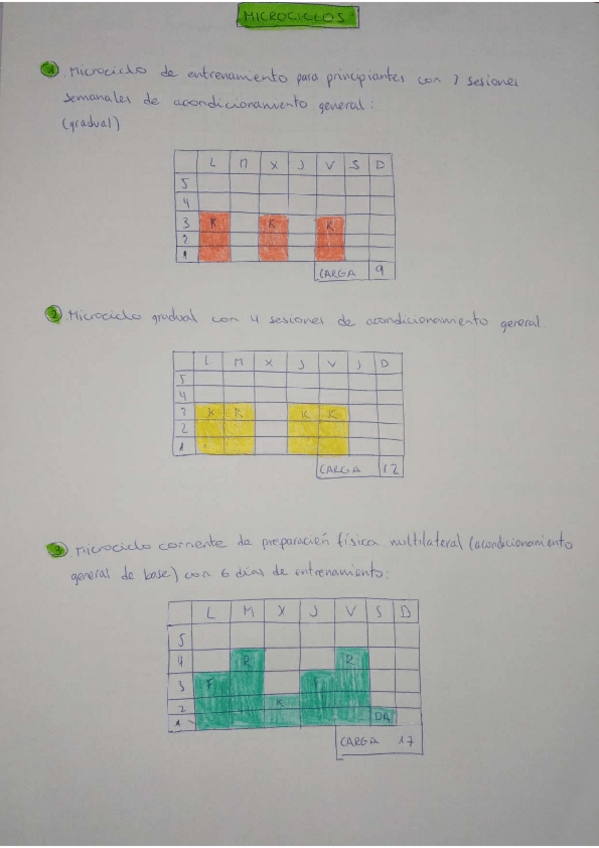 MICROCICLOS
1 Microciclo de entrenamiento para principiantes con 3 sesiones
semanales de acondicionamiento general:
(gradual)
L M X J V S D
5
4
3 K K K
2
1
CARGA 9
2 Microciclo gradual con 4 sesiones de acondicionamiento general.
L M X J V J D
5
4
3 K K K K
2
1
CARGA 12
3 Microciclo corriente de preparación física multilateral (acondicionamiento
general de base) con 6 días de entrenamiento:
L M X J V S D
5
4 R R
3 F
2 K
1 DA
CARGA 17